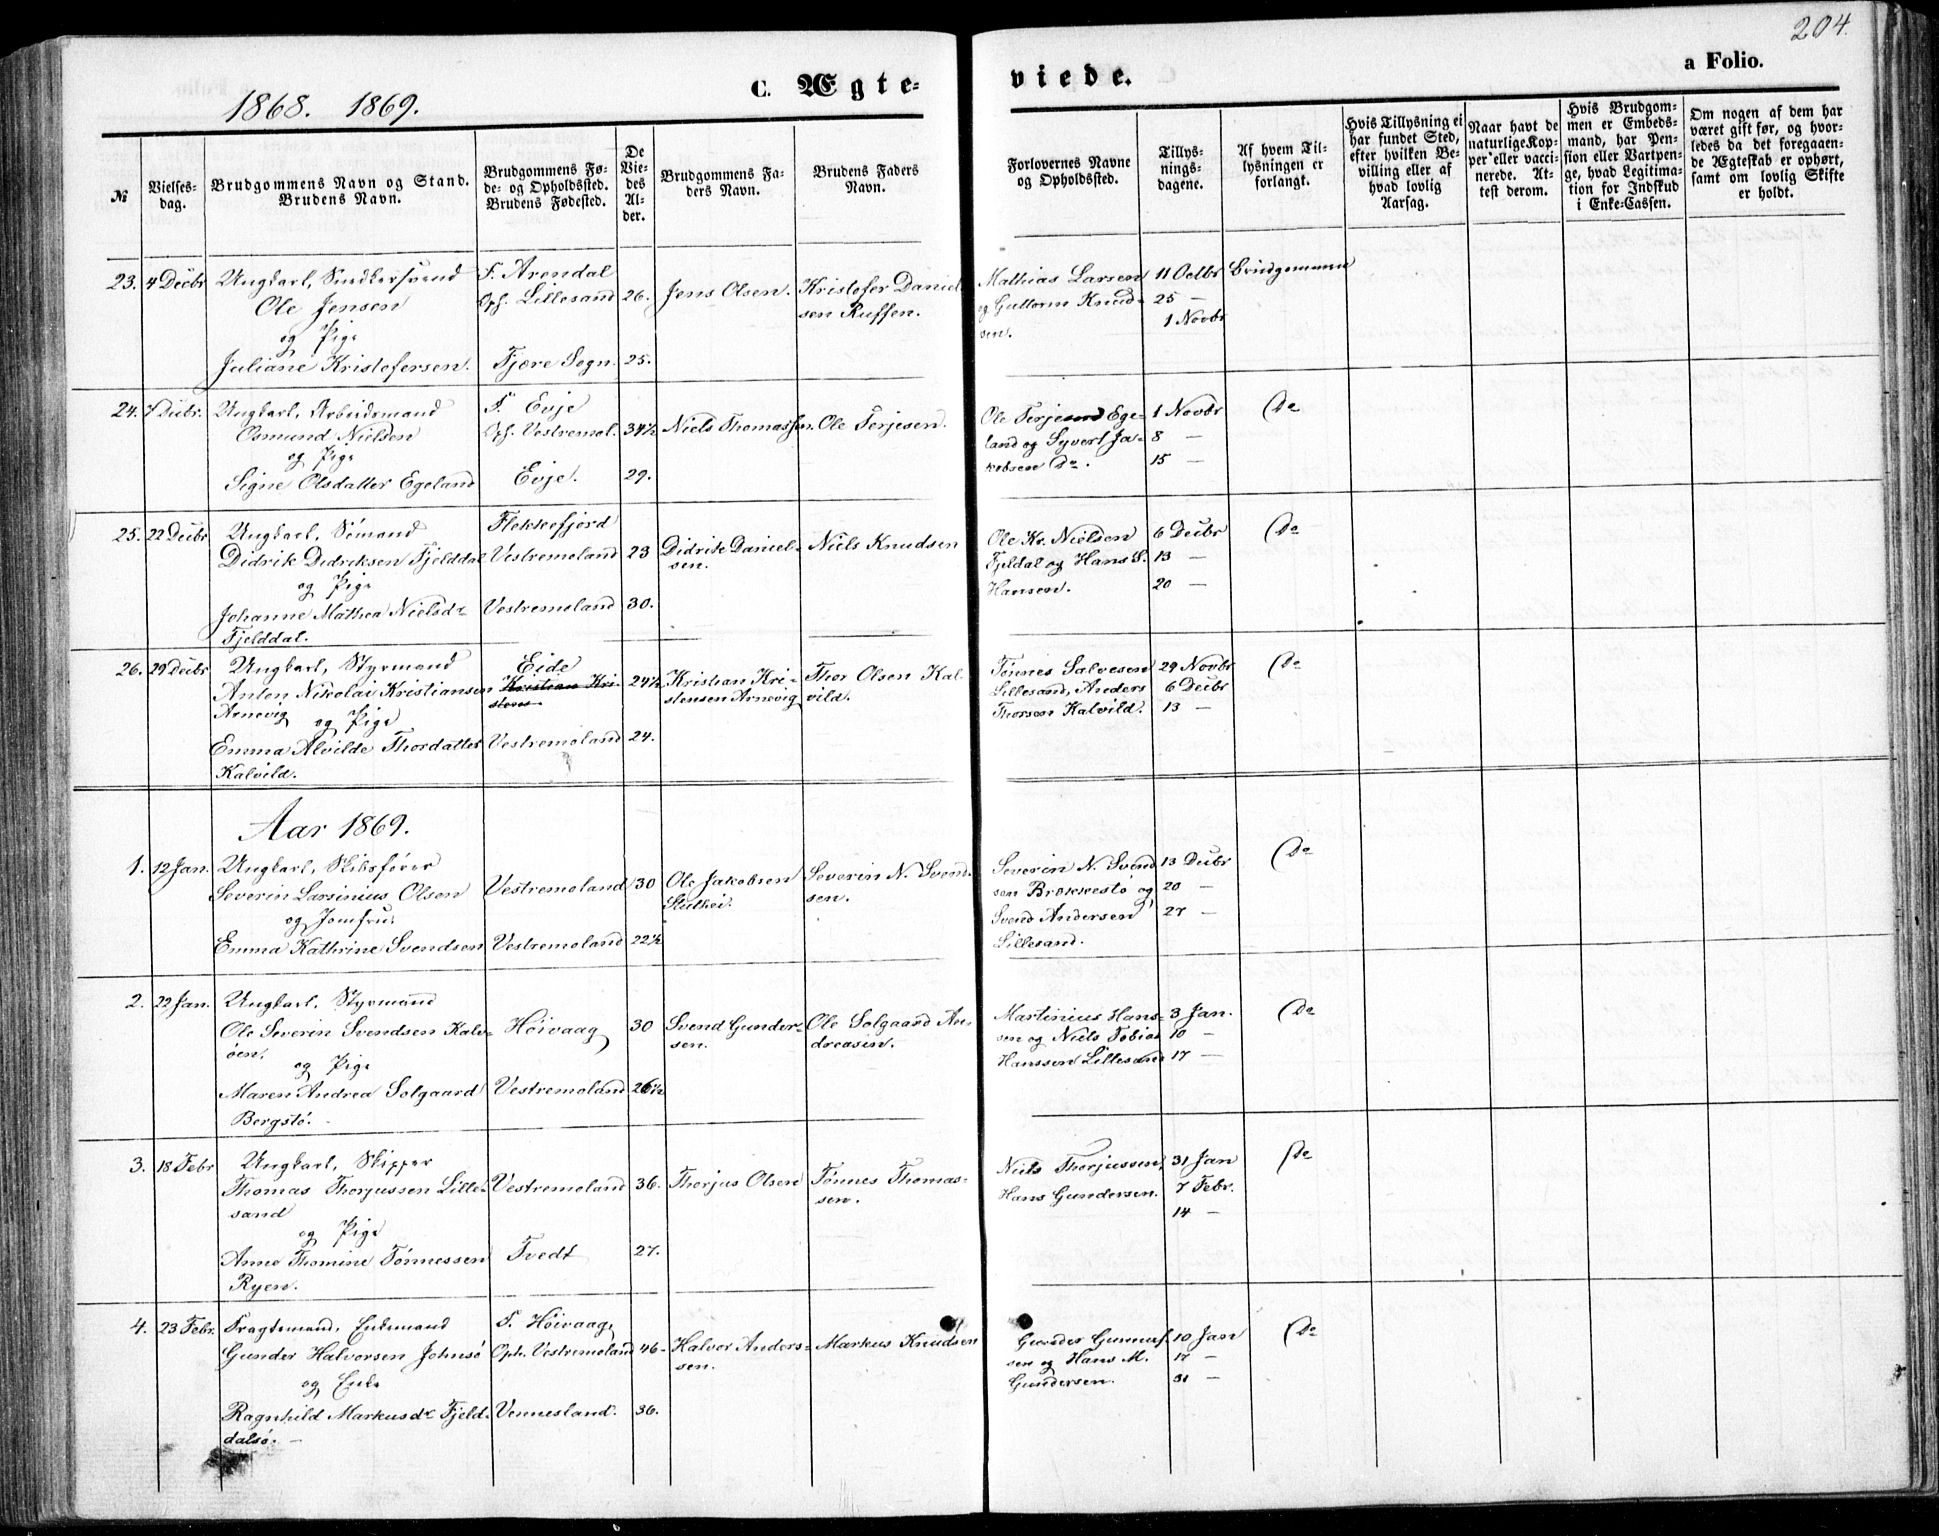 204.
C. Ægte-
viede.
a Folio.
1868. 1869.
№
Vielses-
dag.
Brudgommens Navn og Stand.
Brudens Navn.
Brudgommens Fø-
de- og Opholdssted.
Brudens Fødested.
De
Vie-
des
Al-
der.
Brudgommens Fa-
ders Navn.
Brudens Faders
Navn.
Forlovernes Navne
og Opholdssted.
Tillys-
nings-
dagene.
Af hvem Til-
lysningen er
forlangt.
Hvis Tillysning ei
har fundet Sted,
efter hvilken Be-
villing eller af
hvad lovlig
Aarsag.
Naar havt de
naturlige Kop-
per eller vacci-
nerede. At-
test derom.
Hvis Brudgom-
men er Embeds-
mand, har Pen-
sion eller Vartpen-
ge, hvad Legitima-
tion for Indskud
i Enke-Cassen.
Om nogen af dem har
været gift før, og hvor-
ledes da det foregaaen-
de Ægteskab er ophørt,
samt om lovlig Skifte
er holdt.
23. 4 Decbr Ungkarl, Snedkersvend
Ole Jensen
og Pige
Juliane Kristofersen.
F. Arendal
Oph. Lillesand 26.
Fjære Sogn. 25.
Jens Olsen.
Kristofer Daniel-
sen Ruffen.
Mathias Larsen
og Guttorm Knud-
sen.
11 Octbr
25 —
1 Novbr
Brudgommen
24. 7 Decbr. Ungkarl, Arbeidsmand
Osmund Nielsen
og Pige
Signe Olsdatter Egeland
F. Evje
Oph. Vestremol. 34½
Evje. 29.
Niels Thomassen.
Ole Terjesen.
Ole Terjesen Ege-
land og Syvert Ja-
kobsen Do.
1 Novbr
8 —
15 —
Do
25. 22 Decbr Ungkarl, Sömand
Didrik Didriksen Fjelddal
og Pige
Johanne Mathea Nielsdr
Fjelddal.
Flekkefjord
Vestremoland 23
Vestremoland 30.
Didrik Daniel-
sen.
Niels Knudsen
Ole Kr. Nielsen
Fjeldal og Hans S.
Hansen.
6 Decbr
13 —
20 —
Do
26. 29 Decbr Ungkarl, Styrmand
Anton Nikolai Kristiansen
Arnevig og Pige
Emma Alvilde Thordatter
Kalvild.
Eide
Kristian Kri-
stens 24½
Vestremoland 24.
Kristian Kri-
stensen Arnevig
Thor Olsen Kal-
vild.
Tönnes Salvesen
Lillesand, Anders
Thorsen Kalvild.
29 Novbr
6 Decbr
13 —
Do
Aar 1869.
1. 12 Jan. Ungkarl, Skibsfører
Severin Larsinius Olsen
og Jomfru
Emma Kathrine Svendsen
Vestremoland 30
Vestremoland 22½
Ole Jakobsen
Stuthei.
Severin N. Svend-
sen.
Severin N. Svend-
sen Brekkestö og
Svend Andersen
Lillesand.
13 Decbr
20 —
27 —
Do
2. 22 Jan. Ungkarl, Styrmand
Ole Severin Svendsen Kalv-
öen,
og Pige
Maren Andrea Solgaard
Bergstö.
Höivaag 30
Vestremoland 26½
Svend Gunder-
sen.
Ole Solgaard An-
dreasen.
Martinius Hans-
sen og Niels Tobias
Hanssen Lillesand
3 Jan.
10 —
17 —
Do
3. 18 Febr Ungkarl, Skipper
Thomas Thorjussen Lille-
sand
og Pige
Anne Thomine Tönnessen
Ryen.
Vestremoland 36.
Tvedt 27.
Thorjus Olsen
Tönnes Thomas-
sen.
Niels Thorjussen,
Hans Gundersen.
31 Jan
7 Febr.
14 —
Do
4. 23 Febr. Fragtemand, Enkemand
Gunder Halvorsen Johnsö
og Enke
Ragnhild Markusdr Fjeld-
dalsö. —
F. Höivaag,
Oph. Vestremoland 46-
Vennesland. 36.
Halvor Anders-
sen.
Markus Knudsen
Gunder Gunnuf-
sen og Hans M.
Gundersen.
10 Jan
17 —
31 —
Do